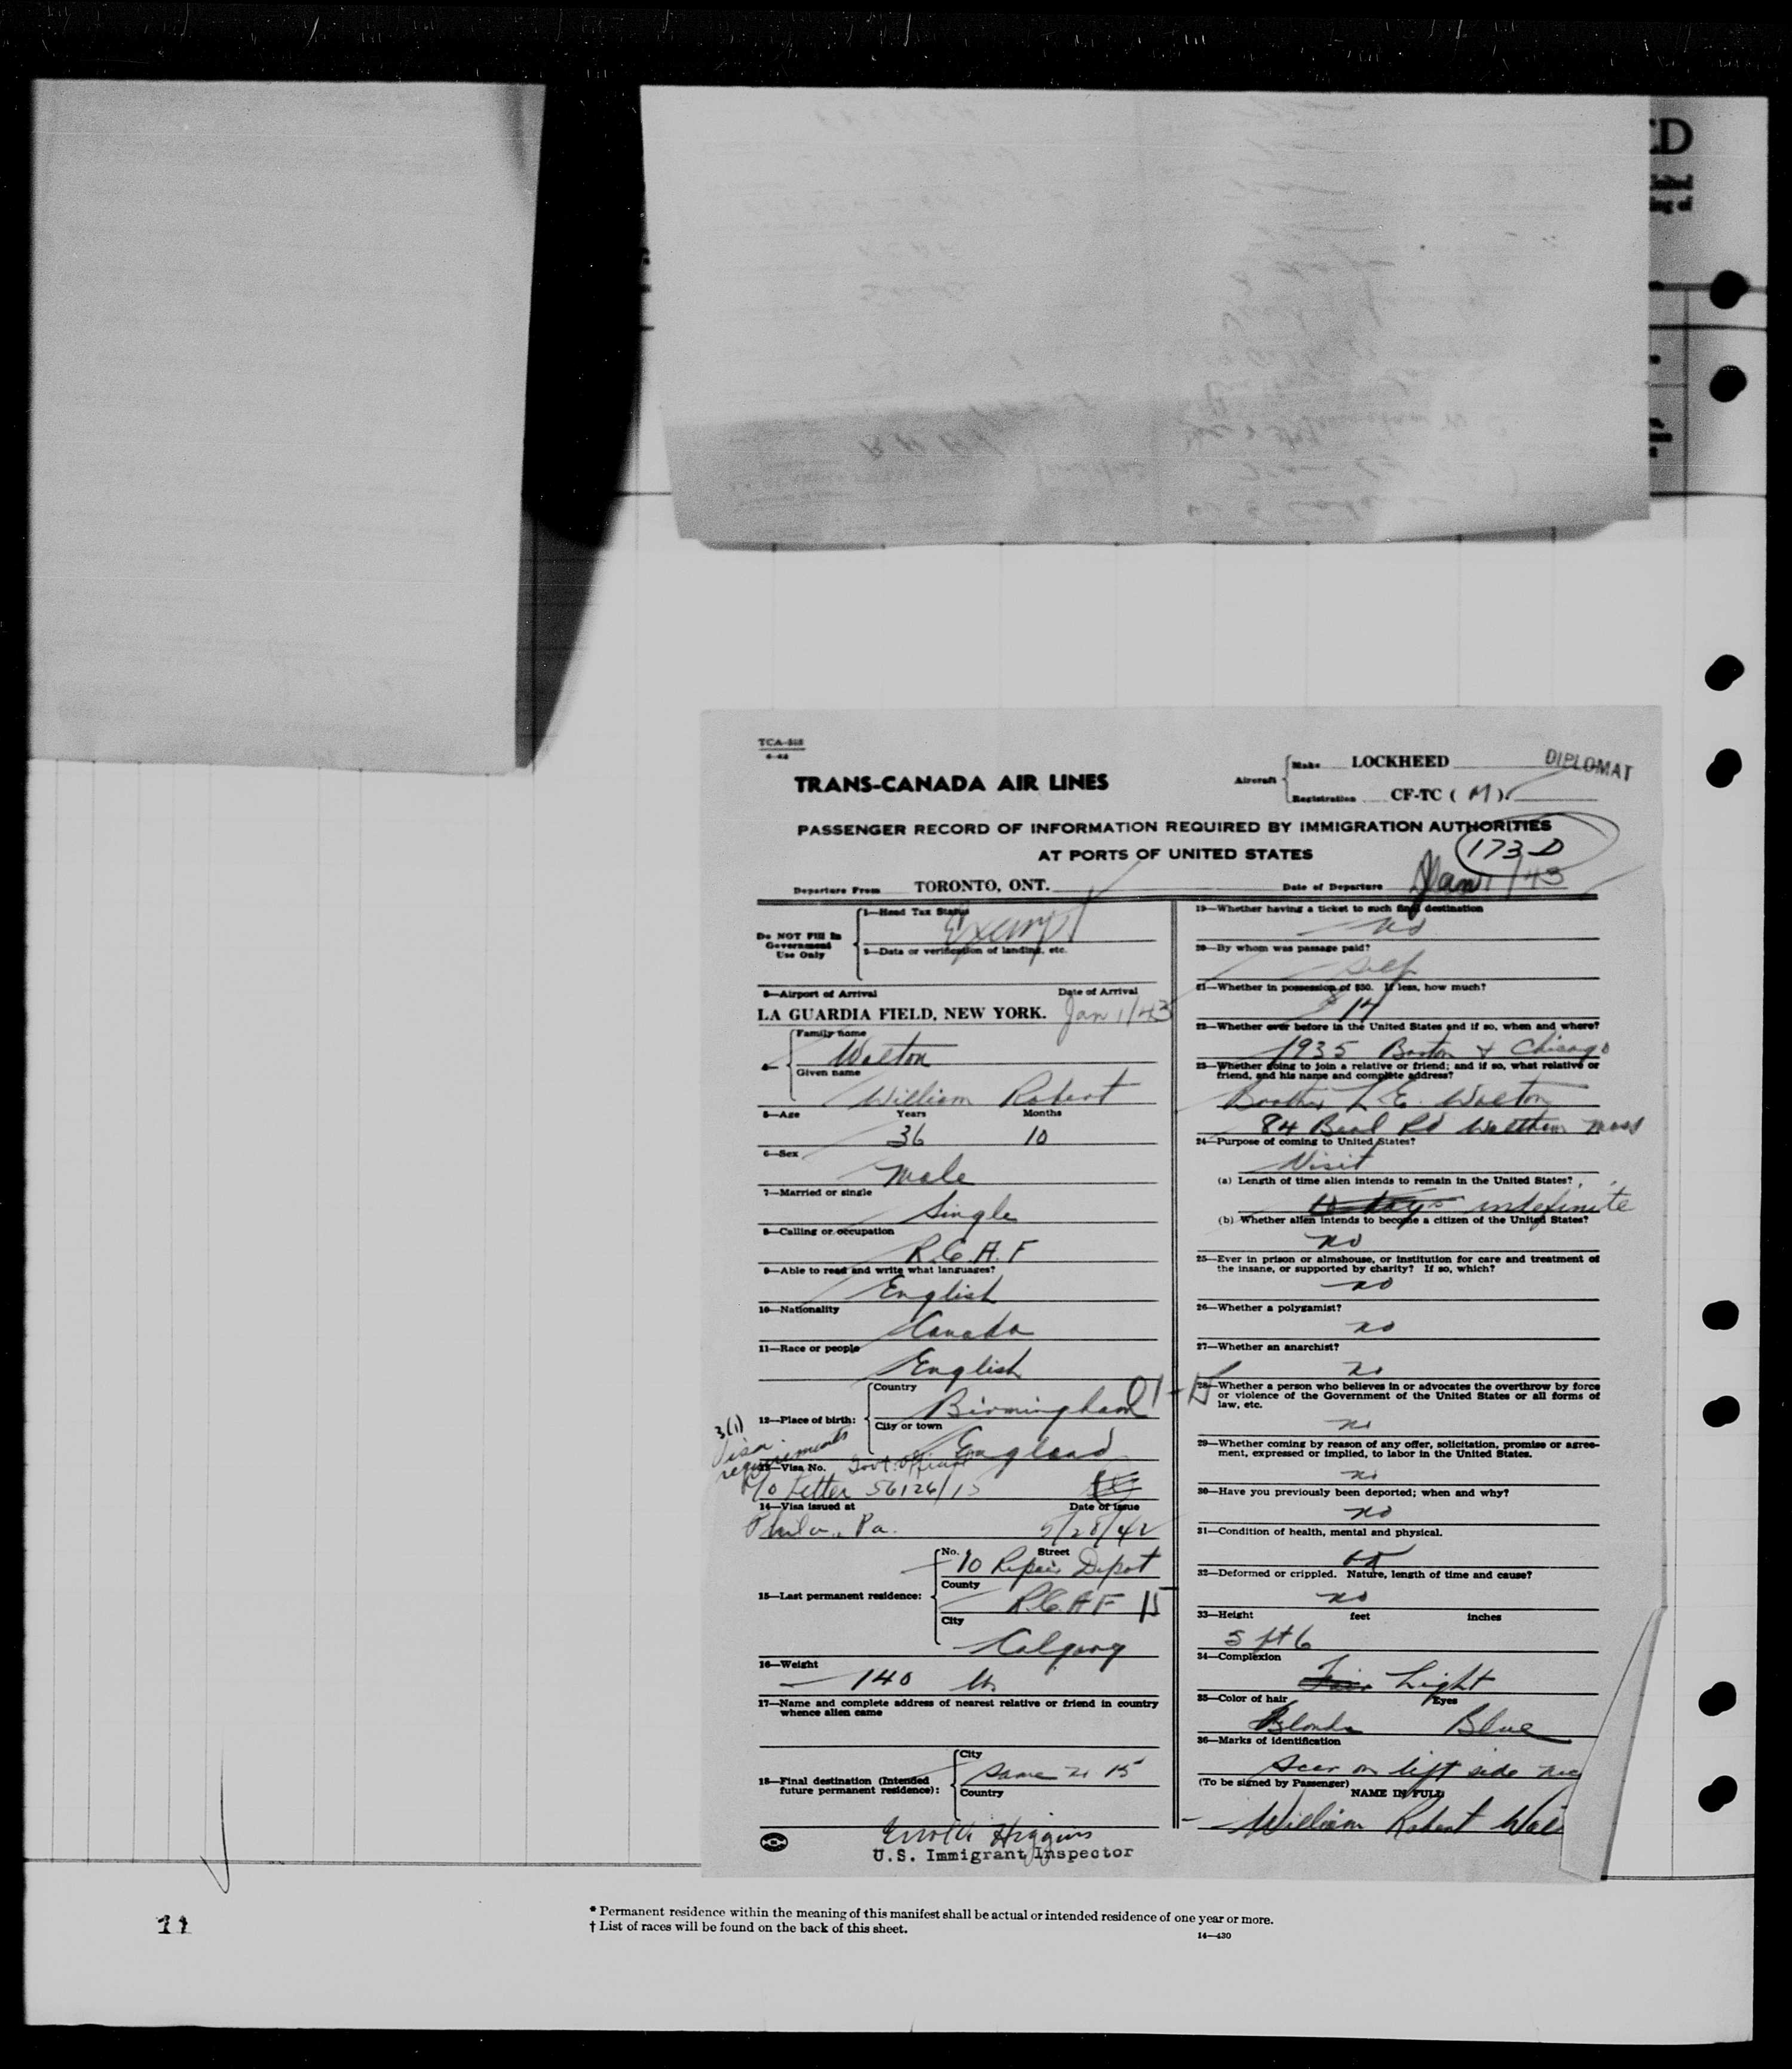 TCA-515
TRANS-CANADA AIR LINES
Aircraft
Make LOCKHEED
DIPLOMAT
Registration CF-TC ( M )
PASSENGER RECORD OF INFORMATION REQUIRED BY IMMIGRATION AUTHORITIES
AT PORTS OF UNITED STATES
173 D
Departure From TORONTO, ONT.
Date of Departure Jan 1/43
Do NOT Fill In
Government
Use Only
1—Head Tax Status
Exempt
2—Data or verification of landing, etc.
3—Airport of Arrival Date of Arrival
LA GUARDIA FIELD, NEW YORK. Jan 1/43
4—
Family name
Walton
Given name
William Robert
5—Age Years Months
36 10
6—Sex
Male
7—Married or single
Single
8—Calling or occupation
R.C.A.F
9—Able to read and write what languages?
English
10—Nationality
Canada
11—Race or people
English
12—Place of birth:
Country
Birmingham
City or town
England
3(1)
Visa
requirements
13—Visa No. Govt. Official
Letter 56126/15
14—Visa issued at Date of Issue
Phila., Pa. 5/28/42
15—Last permanent residence:
No. Street
10 Repair Depot
County
R.C.A.F 15
City
Calgary
16—Weight
140 lbs
17—Name and complete address of nearest relative or friend in country
whence alien came
18—Final destination (Intended
future permanent residence):
City
Same 15
Country
Higgins
U.S. Immigrant Inspector
19—Whether having a ticket to such final destination
no
20—By whom was passage paid?
Self
21—Whether in possession of $50. If less, how much?
$14
22—Whether ever before in the United States and if so, when and where?
1935 Boston & Chicago
23—Whether going to join a relative or friend; and if so, what relative or
friend, and his name and complete address?
Brother L.E. Walton
84 Beal Rd Waltham Mass
24—Purpose of coming to United States?
Visit
(a) Length of time alien intends to remain in the United States?
10 days indefinite
(b) Whether alien intends to become a citizen of the United States?
no
25—Ever in prison or almshouse, or institution for care and treatment of
the insane, or supported by charity? If so, which?
no
26—Whether a polygamist?
no
27—Whether an anarchist?
no
28—Whether a person who believes in or advocates the overthrow by force
or violence of the Government of the United States or all forms of
law, etc.
no
29—Whether coming by reason of any offer, solicitation, promise or agree-
ment, expressed or implied, to labor in the United States.
no
30—Have you previously been deported; when and why?
no
31—Condition of health, mental and physical.
32—Deformed or crippled. Nature, length of time and cause?
no
33—Height feet inches
5 ft 6
34—Complexion
Fair Light
35—Color of hair Eyes
Blonde Blue
36—Marks of identification
Scar on left side
(To be signed by Passenger)
NAME IN FULL
William Robert Wal
11
* Permanent residence within the meaning of this manifest shall be actual or intended residence of one year or more.
† List of races will be found on the back of this sheet.
14—430